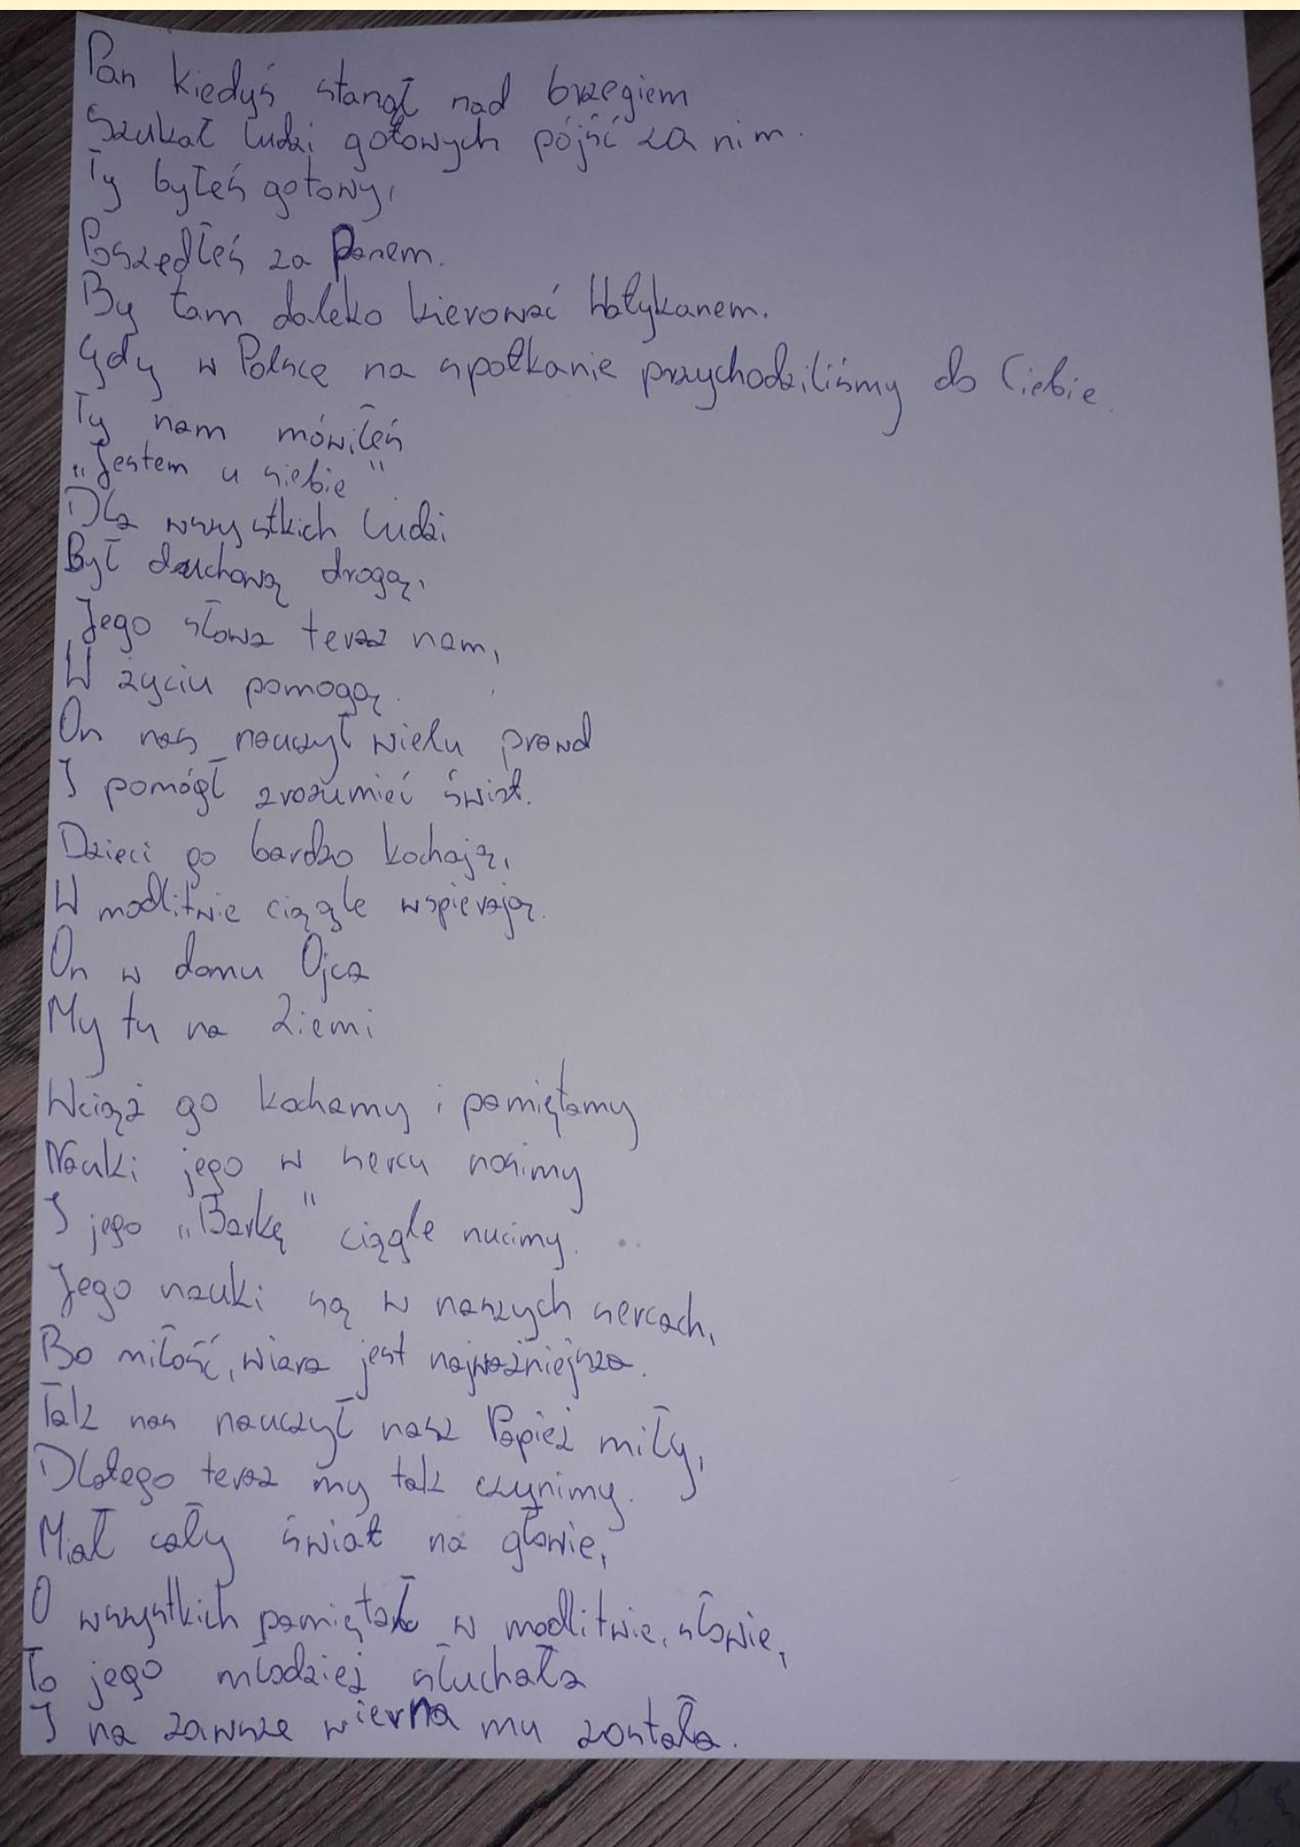 Pan kiedyś stanął nad brzegiem
Szukał ludzi gotowych pójść za nim.
Ty byłeś gotowy,
Poszedłeś za Panem.
By tam daleko kierować Watykanem.
Gdy w Polsce na spotkanie przychodziliśmy do Ciebie.
Ty nam mówiłeś
„Jestem u siebie"
Dla wszystkich ludzi
Był duchową drogą,
Jego słowa teraz nam,
W życiu pomogą.
On nas nauczył wielu prawd
I pomógł zrozumieć świat.
Dzieci go bardzo kochają,
W modlitwie ciągle wspierają.
On w domu Ojca
My tu na Ziemi
Wciąż go kochamy i pamiętamy
Nauki jego w sercu nosimy
I jego „Barkę" ciągle nucimy.
Jego nauki są w naszych sercach,
Bo miłość, wiara jest najważniejsza.
Tak nas nauczył nasz Papież miły,
Dlatego teraz my tak czynimy.
Miał cały świat na głowie,
O wszystkich pamiętał w modlitwie, słowie,
To jego młodzież słuchała
I na zawsze wierna mu została.